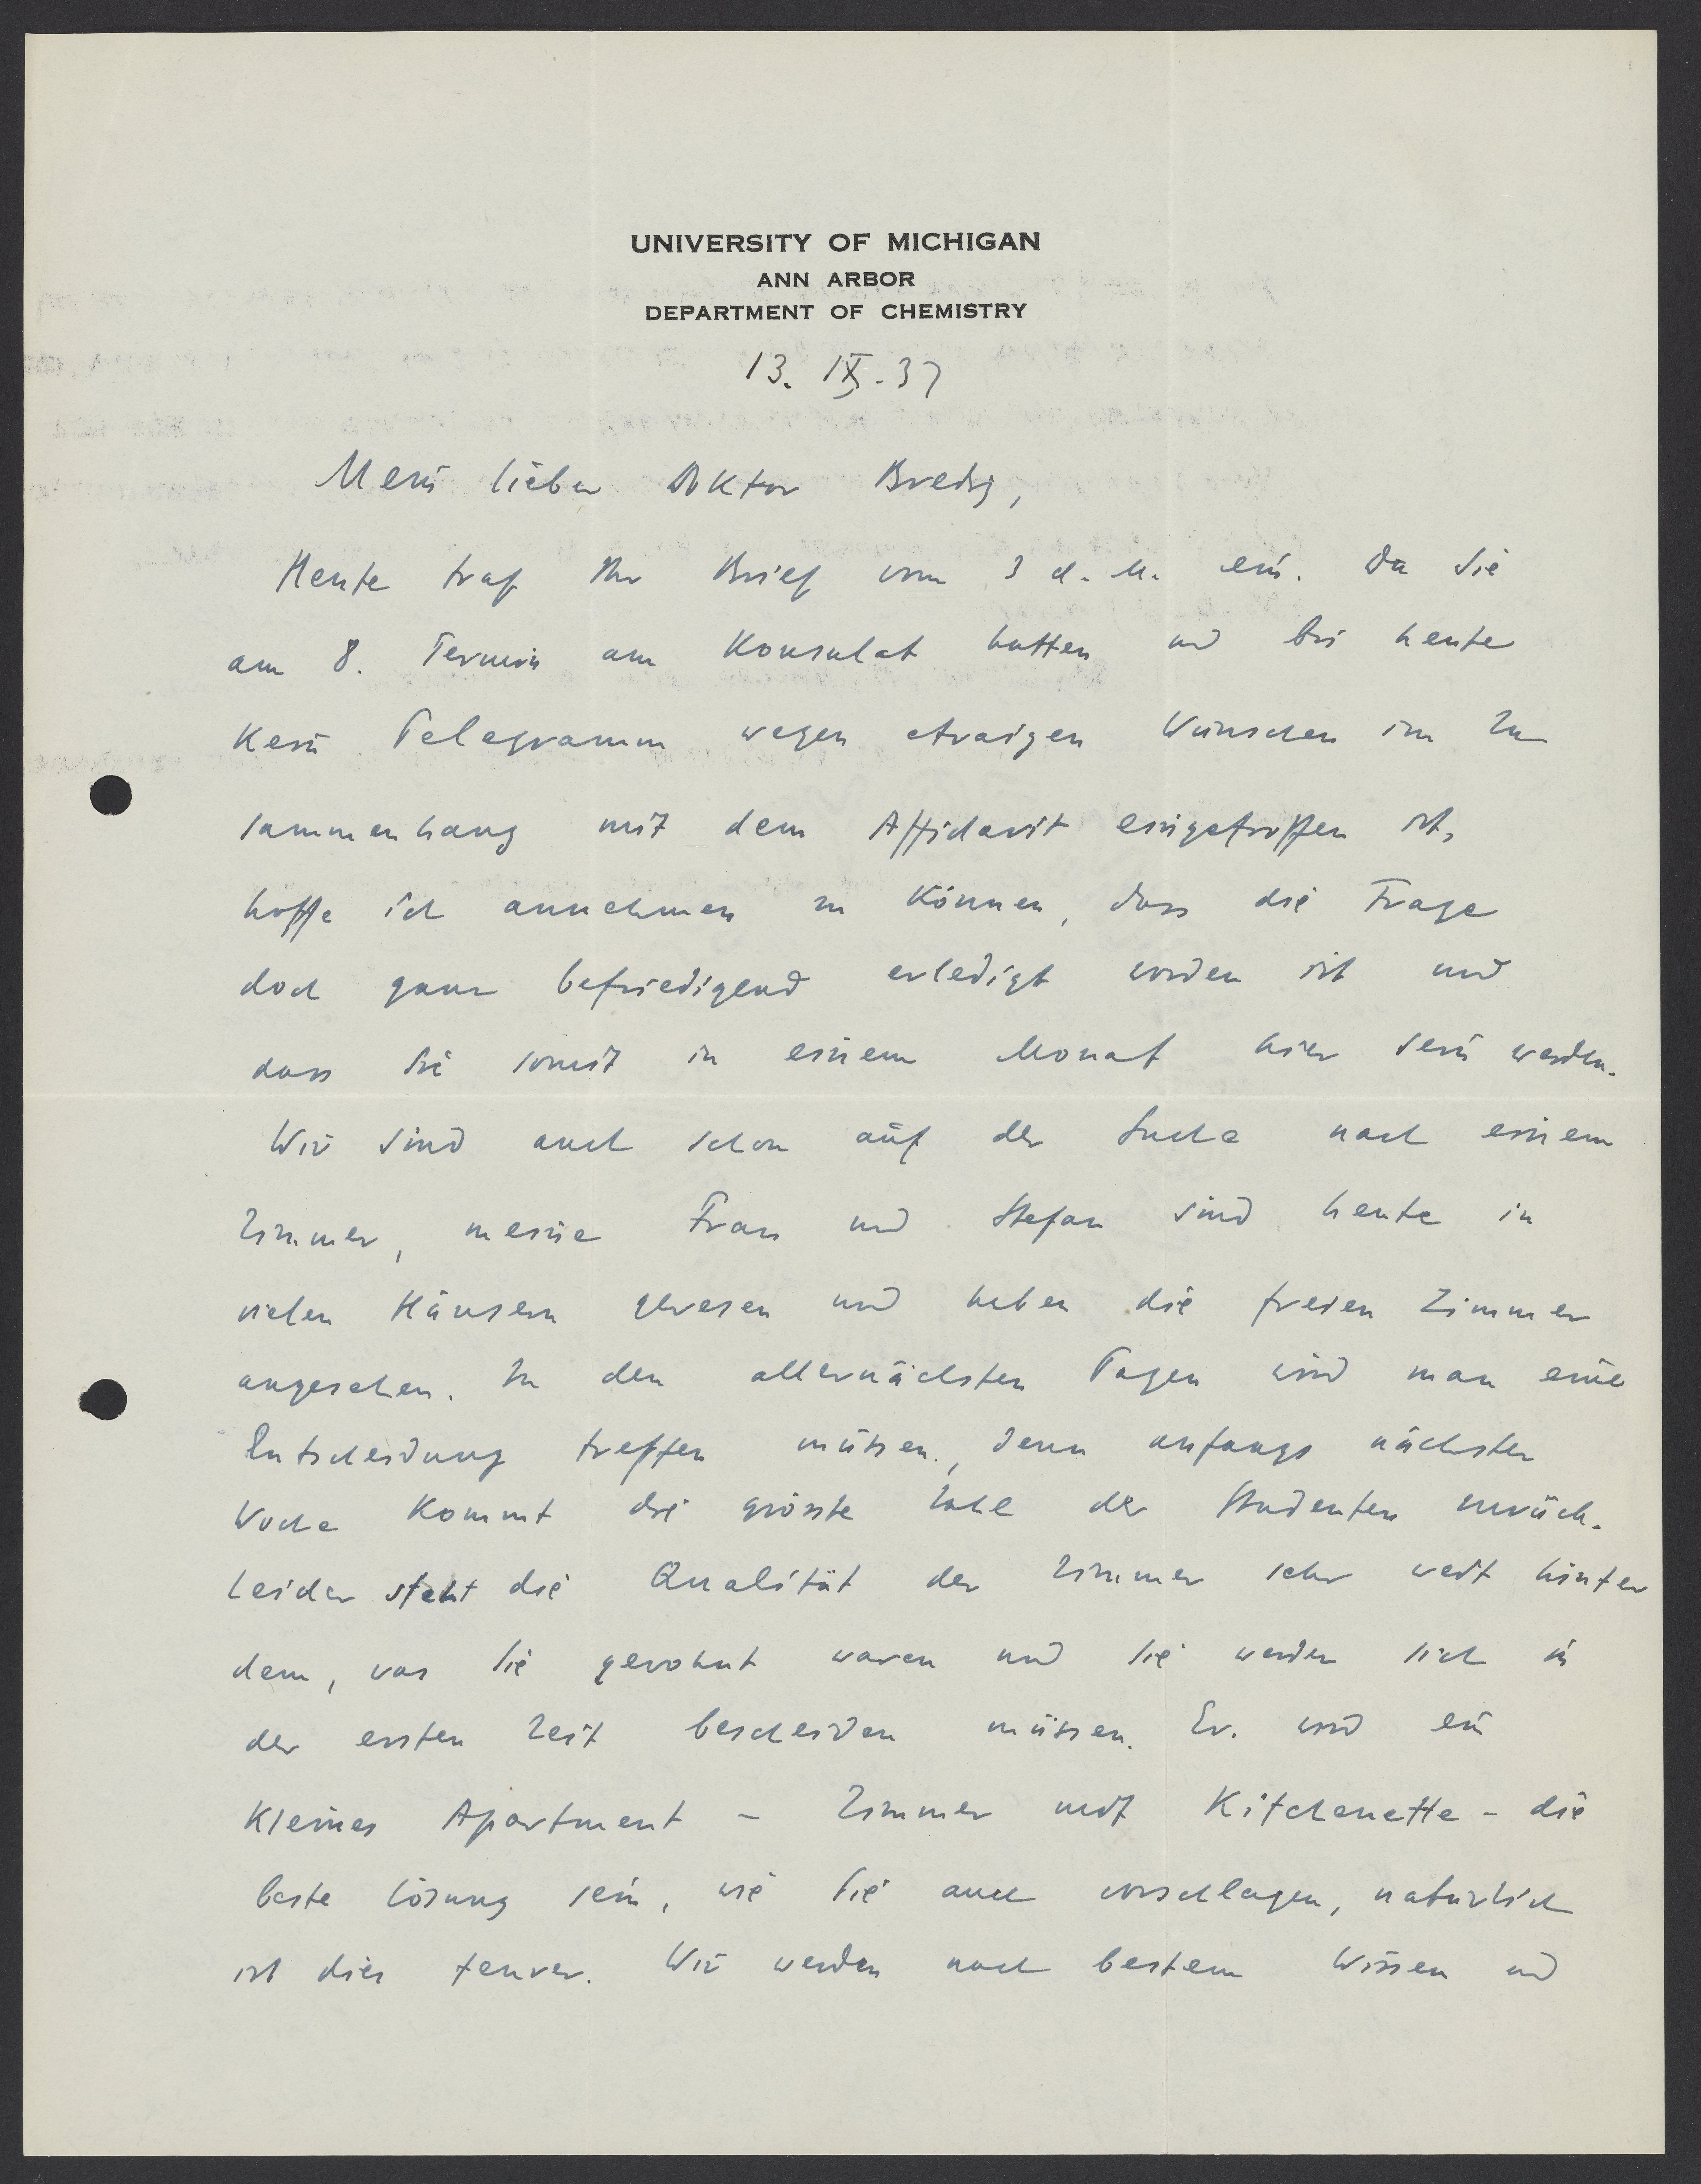 UNIVERSITY OF MICHIGAN
ANN ARBOR
DEPARTMENT OF CHEMISTRY
13. IX. 37
Mein lieber Doktor Bredig,
Heute traf Ihr Brief vom 3 d. M. ein. Da Sie
am 8. Termin am Konsulat hatten und bis heute
kein Telegramm wegen etwaigen Wünschen im Zu
sammenhang mit dem Affidavit eingetroffen ist,
hoffe ich annehmen zu können, dass die Frage
doch ganz befriedigend erledigt worden ist und
dass Sie somit in einem Monat hier sein werden.
Wir sind auch schon auf der Suche nach einem
Zimmer, meine Frau und Stefan sind heute in
vielen Häusern gewesen und haben die freien Zimmer
angesehen. In den allernächsten Tagen wird man eine
Entscheidung treffen müssen, denn anfangs nächster
Woche kommt die grösste Zahl der Studenten zurück.
Leider steht die Qualität der Zimmer sehr weit hinter
dem, was Sie gewohnt waren und Sie werden sich in
der ersten Zeit bescheiden müssen. Ev. wird ein
kleines Apartment - Zimmer mit Kitchenette - die
beste Lösung sein, wie Sie auch vorschlagen, natürlich
ist dies teurer. Wir werden nach bestem Wissen und